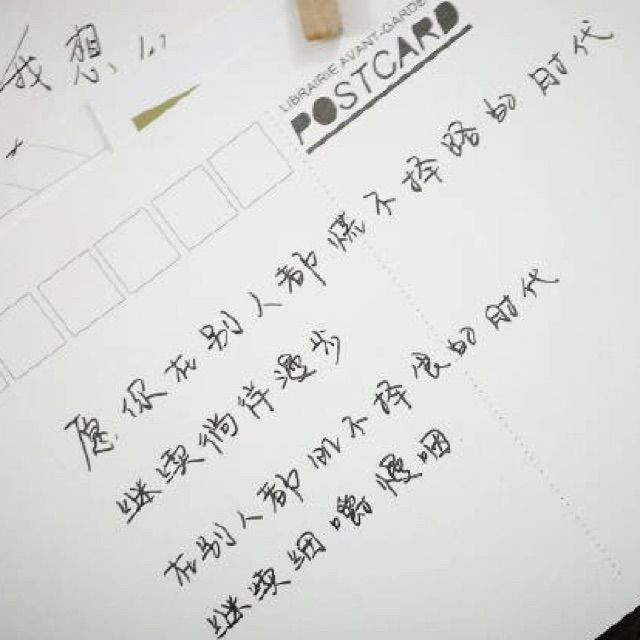 我想
LIBRAIRIE AVANT-GARDE
POSTCARD
愿你在别人都慌不择路的时代
继续徜徉漫步
在别人都饥不择食的时代
继续细嚼慢咽